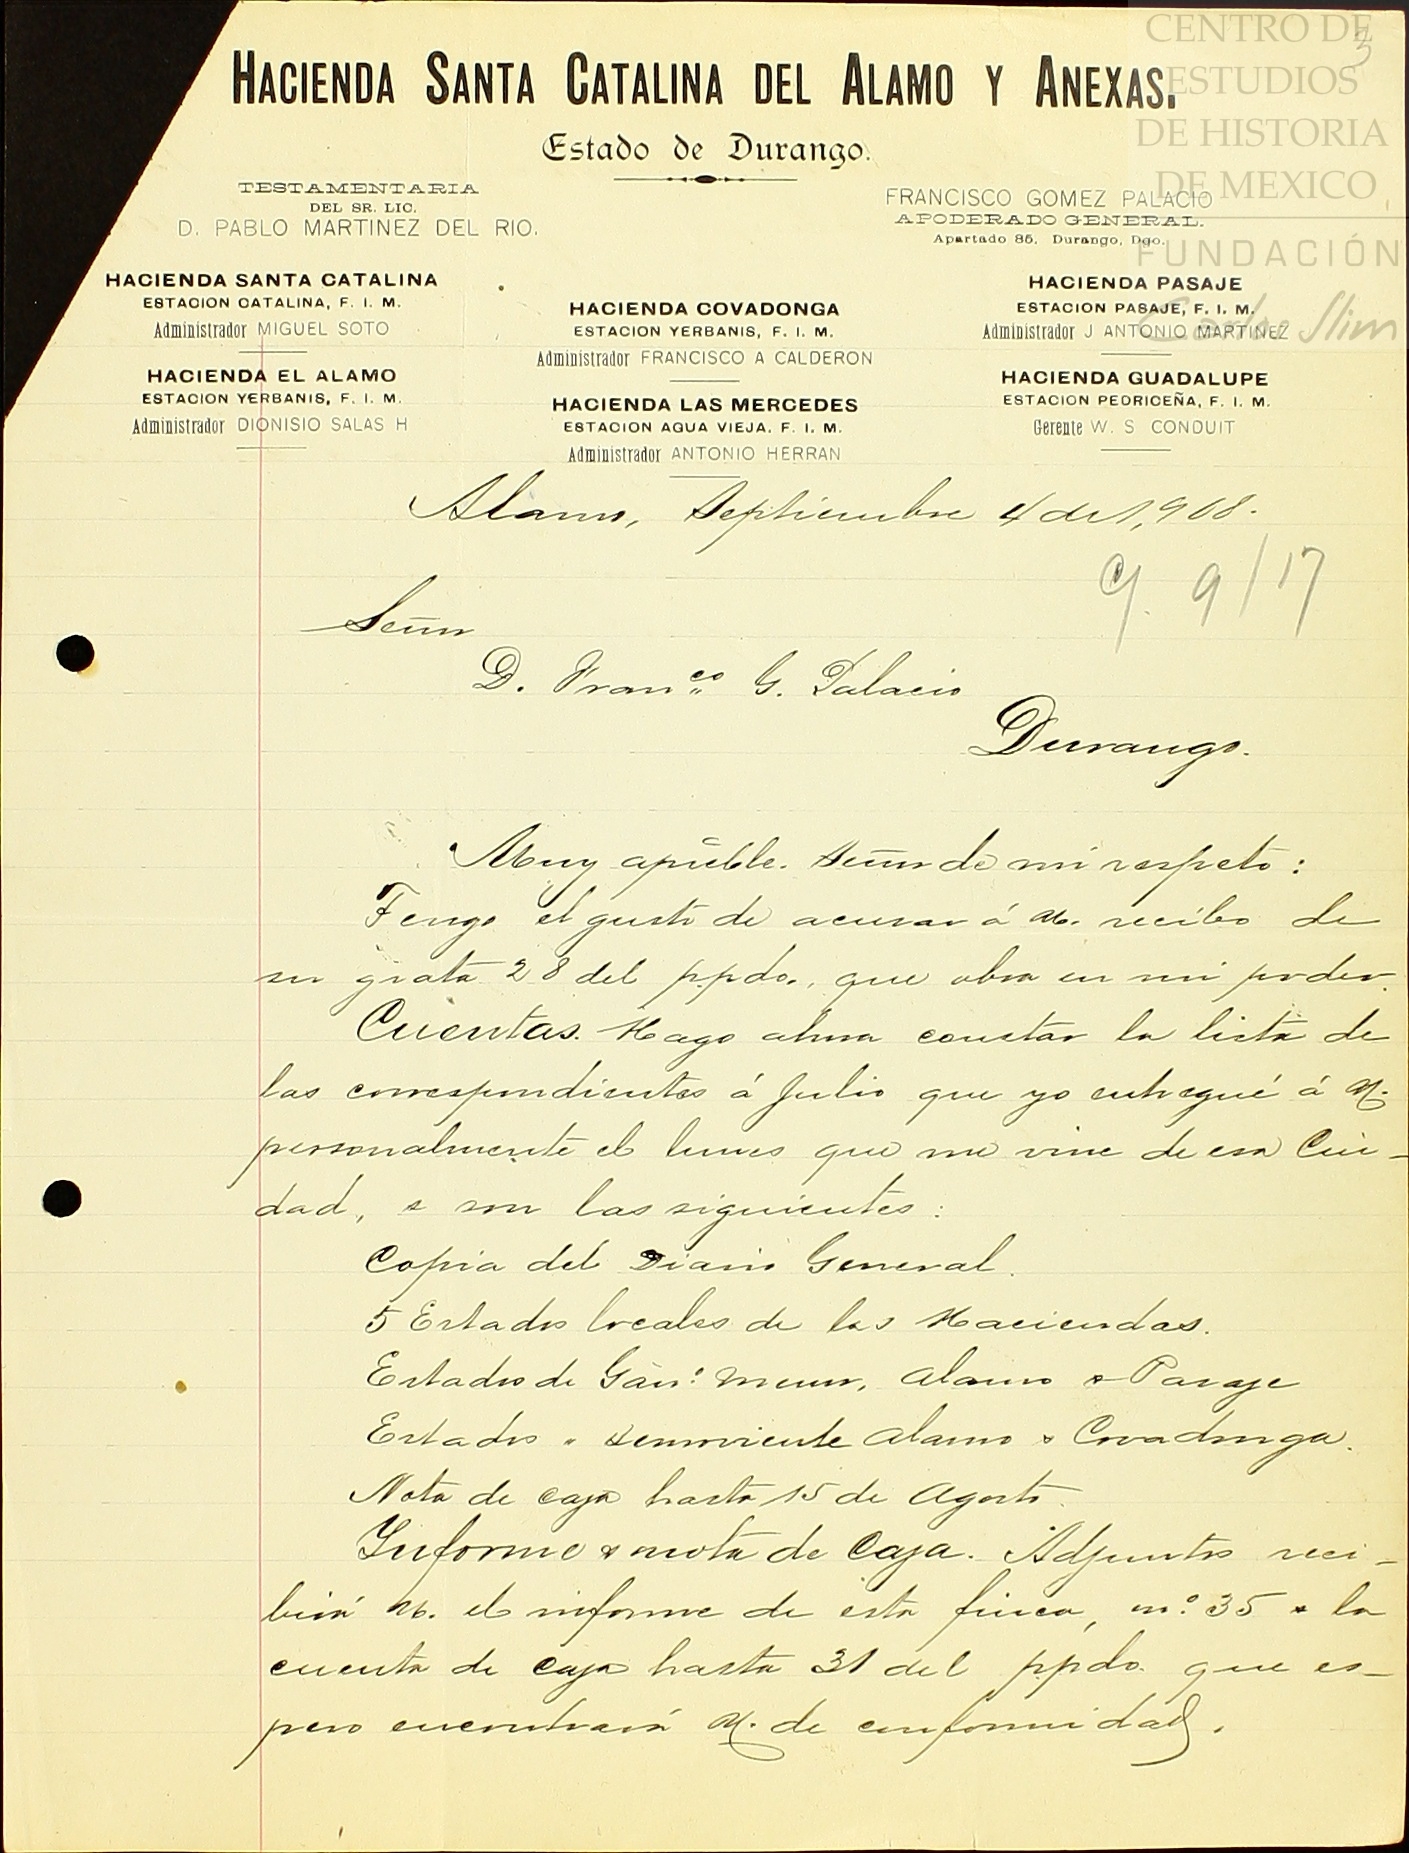 CENTRO DE
ESTUDIOS
DE HISTORIA
DE MEXICO
FUNDACIÓN
Carlos Slim
3
HACIENDA SANTA CATALINA DEL ALAMO Y ANEXAS.
Estado de Durango.
TESTAMENTARIA
DEL SR. LIC.
D. PABLO MARTINEZ DEL RIO.
FRANCISCO GOMEZ PALACIO
APODERADO GENERAL.
Apartado 85. Durango, Dgo.
HACIENDA SANTA CATALINA
ESTACION CATALINA, F. I. M.
Administrador MIGUEL SOTO
HACIENDA EL ALAMO
ESTACION YERBANIS, F. I. M.
Administrador DIONISIO SALAS H
HACIENDA COVADONGA
ESTACION YERBANIS, F. I. M.
Administrador FRANCISCO A CALDERON
HACIENDA LAS MERCEDES
ESTACION AGUA VIEJA. F. I. M.
Administrador ANTONIO HERRAN
HACIENDA PASAJE
ESTACION PASAJE, F. I. M.
Administrador J ANTONIO MARTINEZ
HACIENDA GUADALUPE
ESTACION PEDRICEÑA, F. I. M.
Gerente W. S CONDUIT
Alamo, Septiembre 4 de 1,908.
9/17
Señor
D. Franco. G. Palacio
Durango.
Muy apreble. Señor de mi respeto:
Tengo el gusto de acusar á U. recibo de
su grata 28 del p.pdo., que obra en mi poder.
Cuentas. Hago ahora constar la lista de
las correspondientes á Julio que yo entregué á U.
personalmente el lunes que me vine de esa Ciu-
dad, y son las siguientes:
Copia del Diario General.
5 Estados locales de las Haciendas.
Estados de Gan.o menor, Alamo y Pasaje
Estados " semoviente Alamo y Covadonga.
Nota de caja hasta 15 de Agosto.
Informe y nota de Caja. Adjuntos reci-
birá U. el informe de esta finca, n.o 35 y la
cuenta de caja hasta 31 del p.pdo. que es-
pero encontrará U. de conformidad.